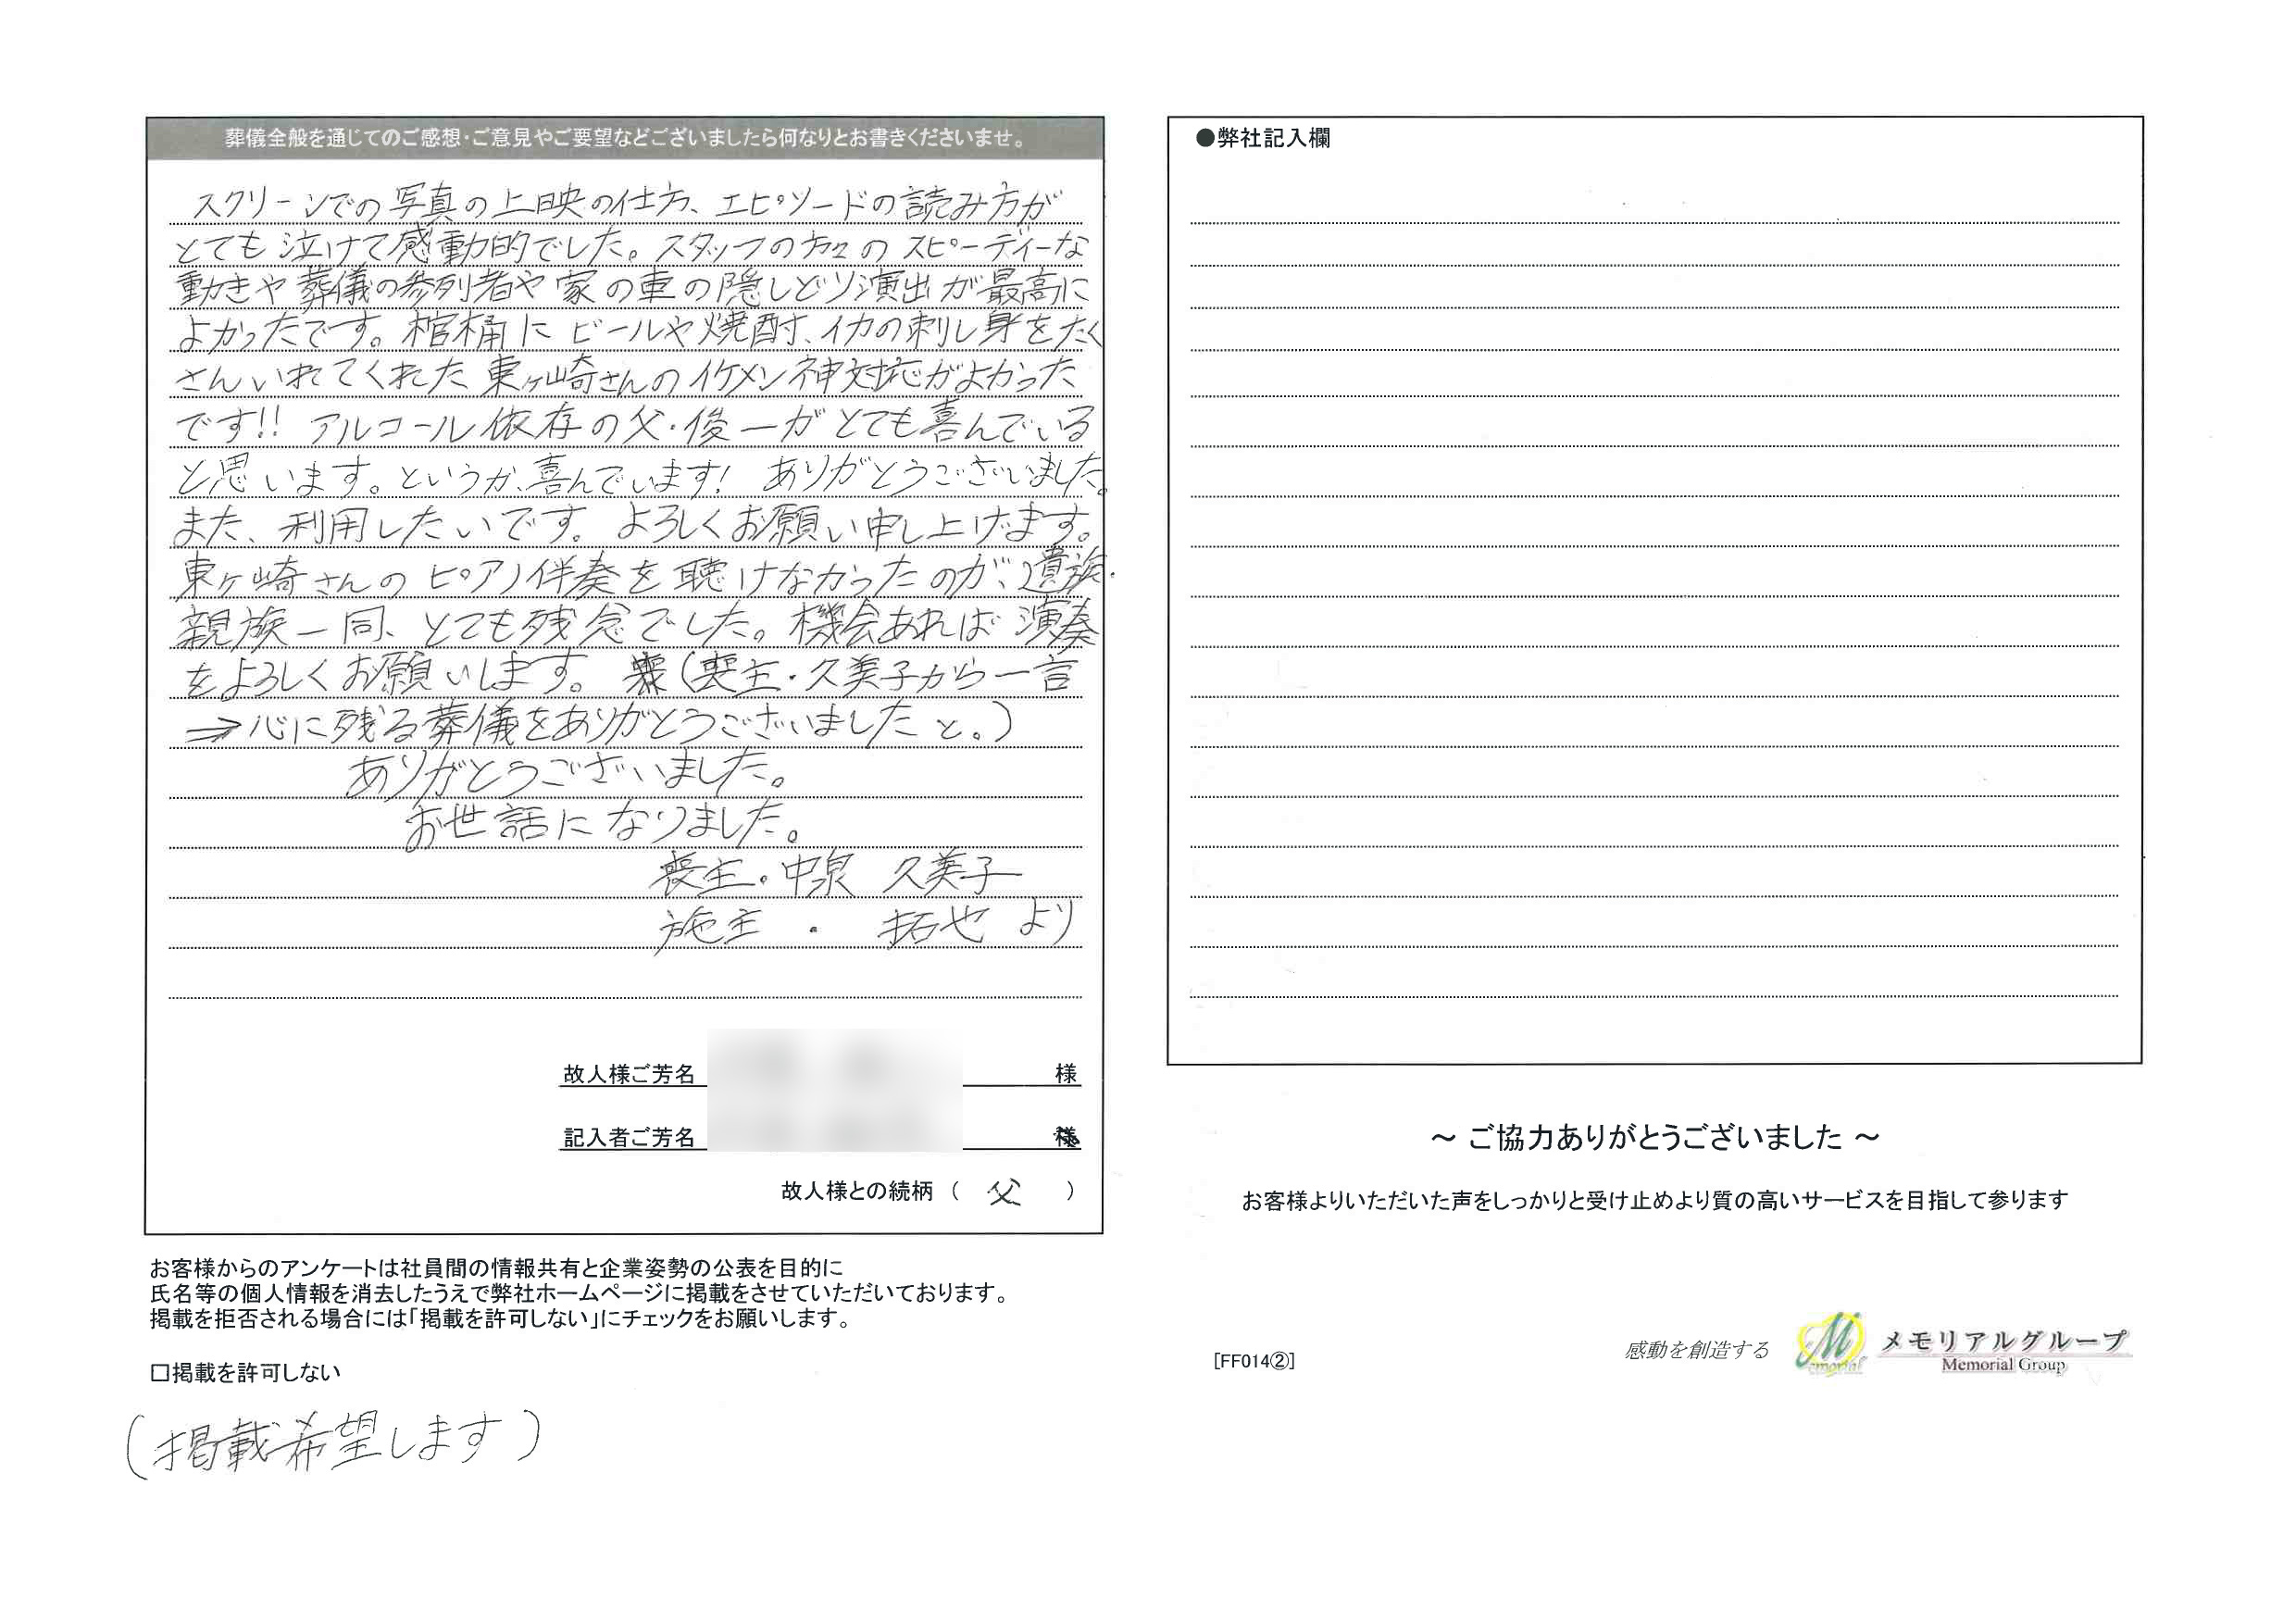 葬儀全般を通じてのご感想・ご意見やご要望などございましたら何なりとお書きくださいませ。
スクリーンでの写真の上映の仕方、エピソードの読み方が
とても泣けて感動的でした。スタッフの方々のスピーディーな
動きや葬儀の参列者や家の車の隠しどり演出が最高に
よかったです。棺桶にビールや焼酎、イカの刺し身をたく
さんいれてくれた東ヶ崎さんのイケメン神対応がよかった
です!! アルコール依存の父・俊一がとても喜んでいる
と思います。というか、喜んでいます! ありがとうございました。
また、利用したいです。よろしくお願い申し上げます。
東ヶ崎さんのピアノ伴奏を聴けなかったのが、遺族・
親族一同、とても残念でした。機会あれば演奏
をよろしくお願いします。(喪主・久美子から一言
⇒心に残る葬儀をありがとうございましたと。)
ありがとうございました。
お世話になりました。
喪主・中泉 久美子
施主 ・ 拓也 より
故人様ご芳名 様
記入者ご芳名 様
故人様との続柄 ( 父 )
お客様からのアンケートは社員間の情報共有と企業姿勢の公表を目的に
氏名等の個人情報を消去したうえで弊社ホームページに掲載をさせていただいております。
掲載を拒否される場合には「掲載を許可しない」にチェックをお願いします。
□掲載を許可しない
(掲載希望します)
●弊社記入欄
～ ご協力ありがとうございました ～
お客様よりいただいた声をしっかりと受け止めより質の高いサービスを目指して参ります
[FF014②]
感動を創造する
M
emorial
メモリアルグループ
Memorial Group